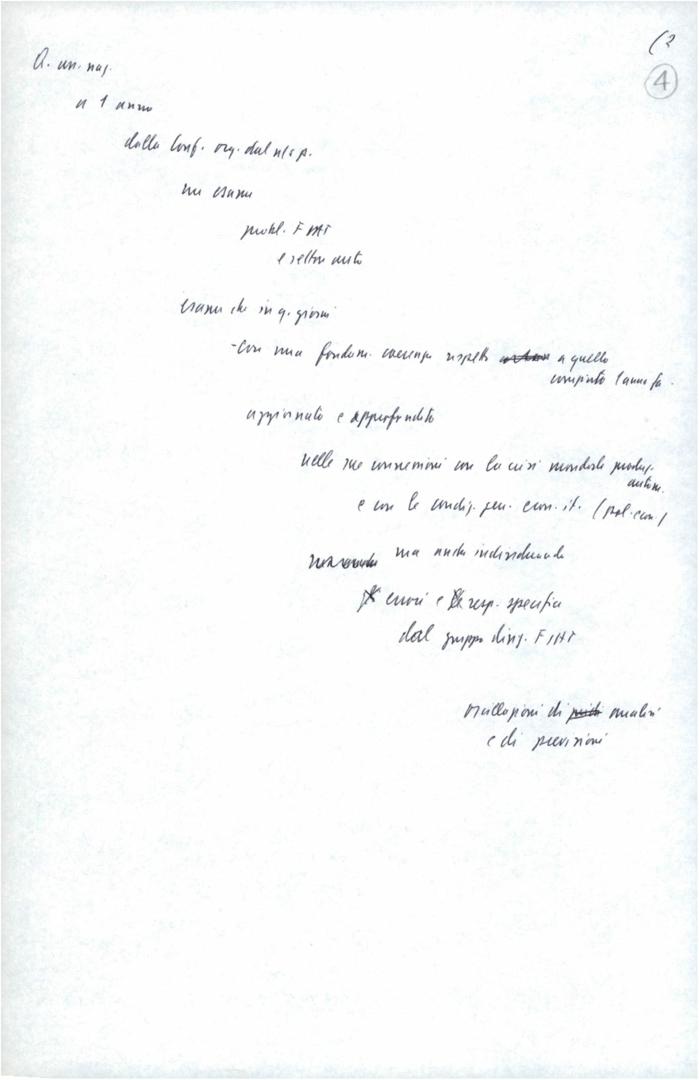 (2
4
Q. an. naz.
a 1 anno
dalla Conf. org. dal n/s p.
su esame
probl. FIAT
e settore auto
esame che in q. giorni
- con una fondam. coerenza rispetto a quello
compiuto 1 anno fa.
aggiornato e approfondito
nelle sue connessioni con la crisi mondiale produz.
autom.
e con le condiz. gen. econ. it. (pol. econ.)
ma anche individuando
errori e resp. specifica
del gruppo dirig. FIAT
oscillazioni di analisi
e di previsioni